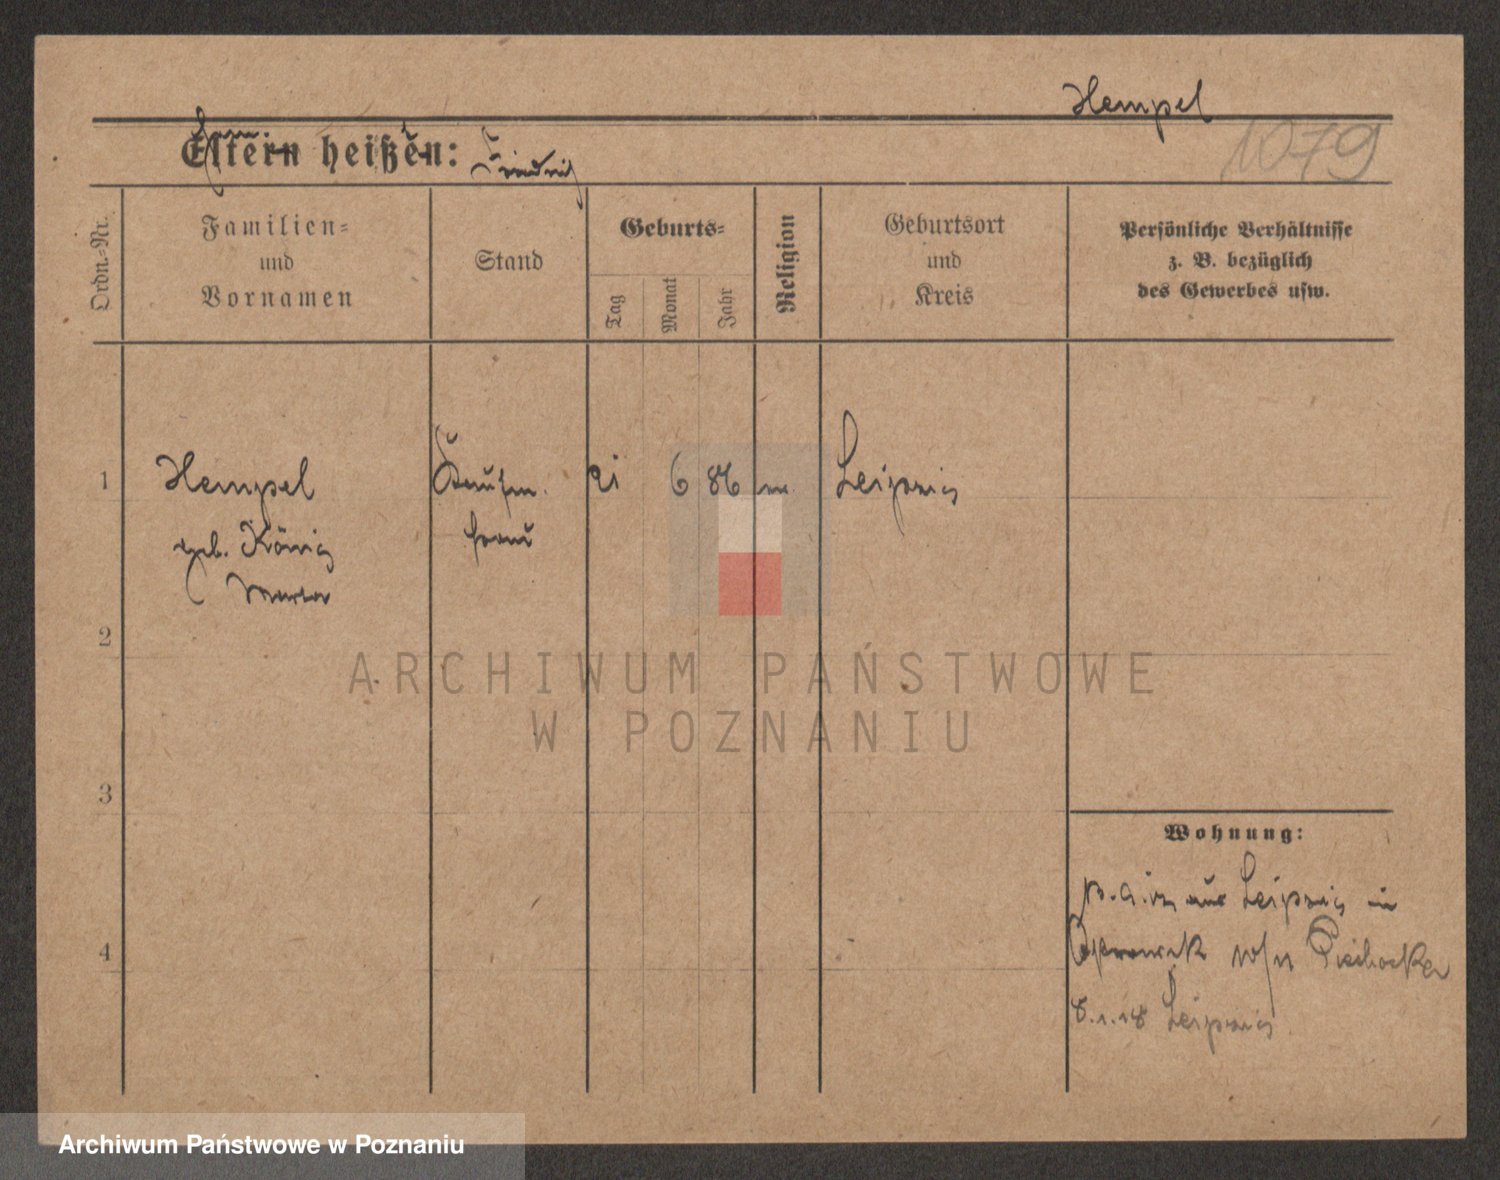 Hempel
1079
Eltern heißen: Friedrich
Ordn.-Nr.
Familien-
und
Vornamen
Stand
Geburts-
Tag
Monat
Jahr
Religion
Geburtsort
und
Kreis
Persönliche Verhältnisse
z. B. bezüglich
des Gewerbes usw.
1 Hempel Kaufm. 21 6 86 Leipzig
geb. König frau
2
3
4
Wohnung:
aus Leipzig in
8.1.18 Leipzig
ARCHIWUM PAŃSTWOWE
W POZNANIU
Archiwum Państwowe w Poznaniu